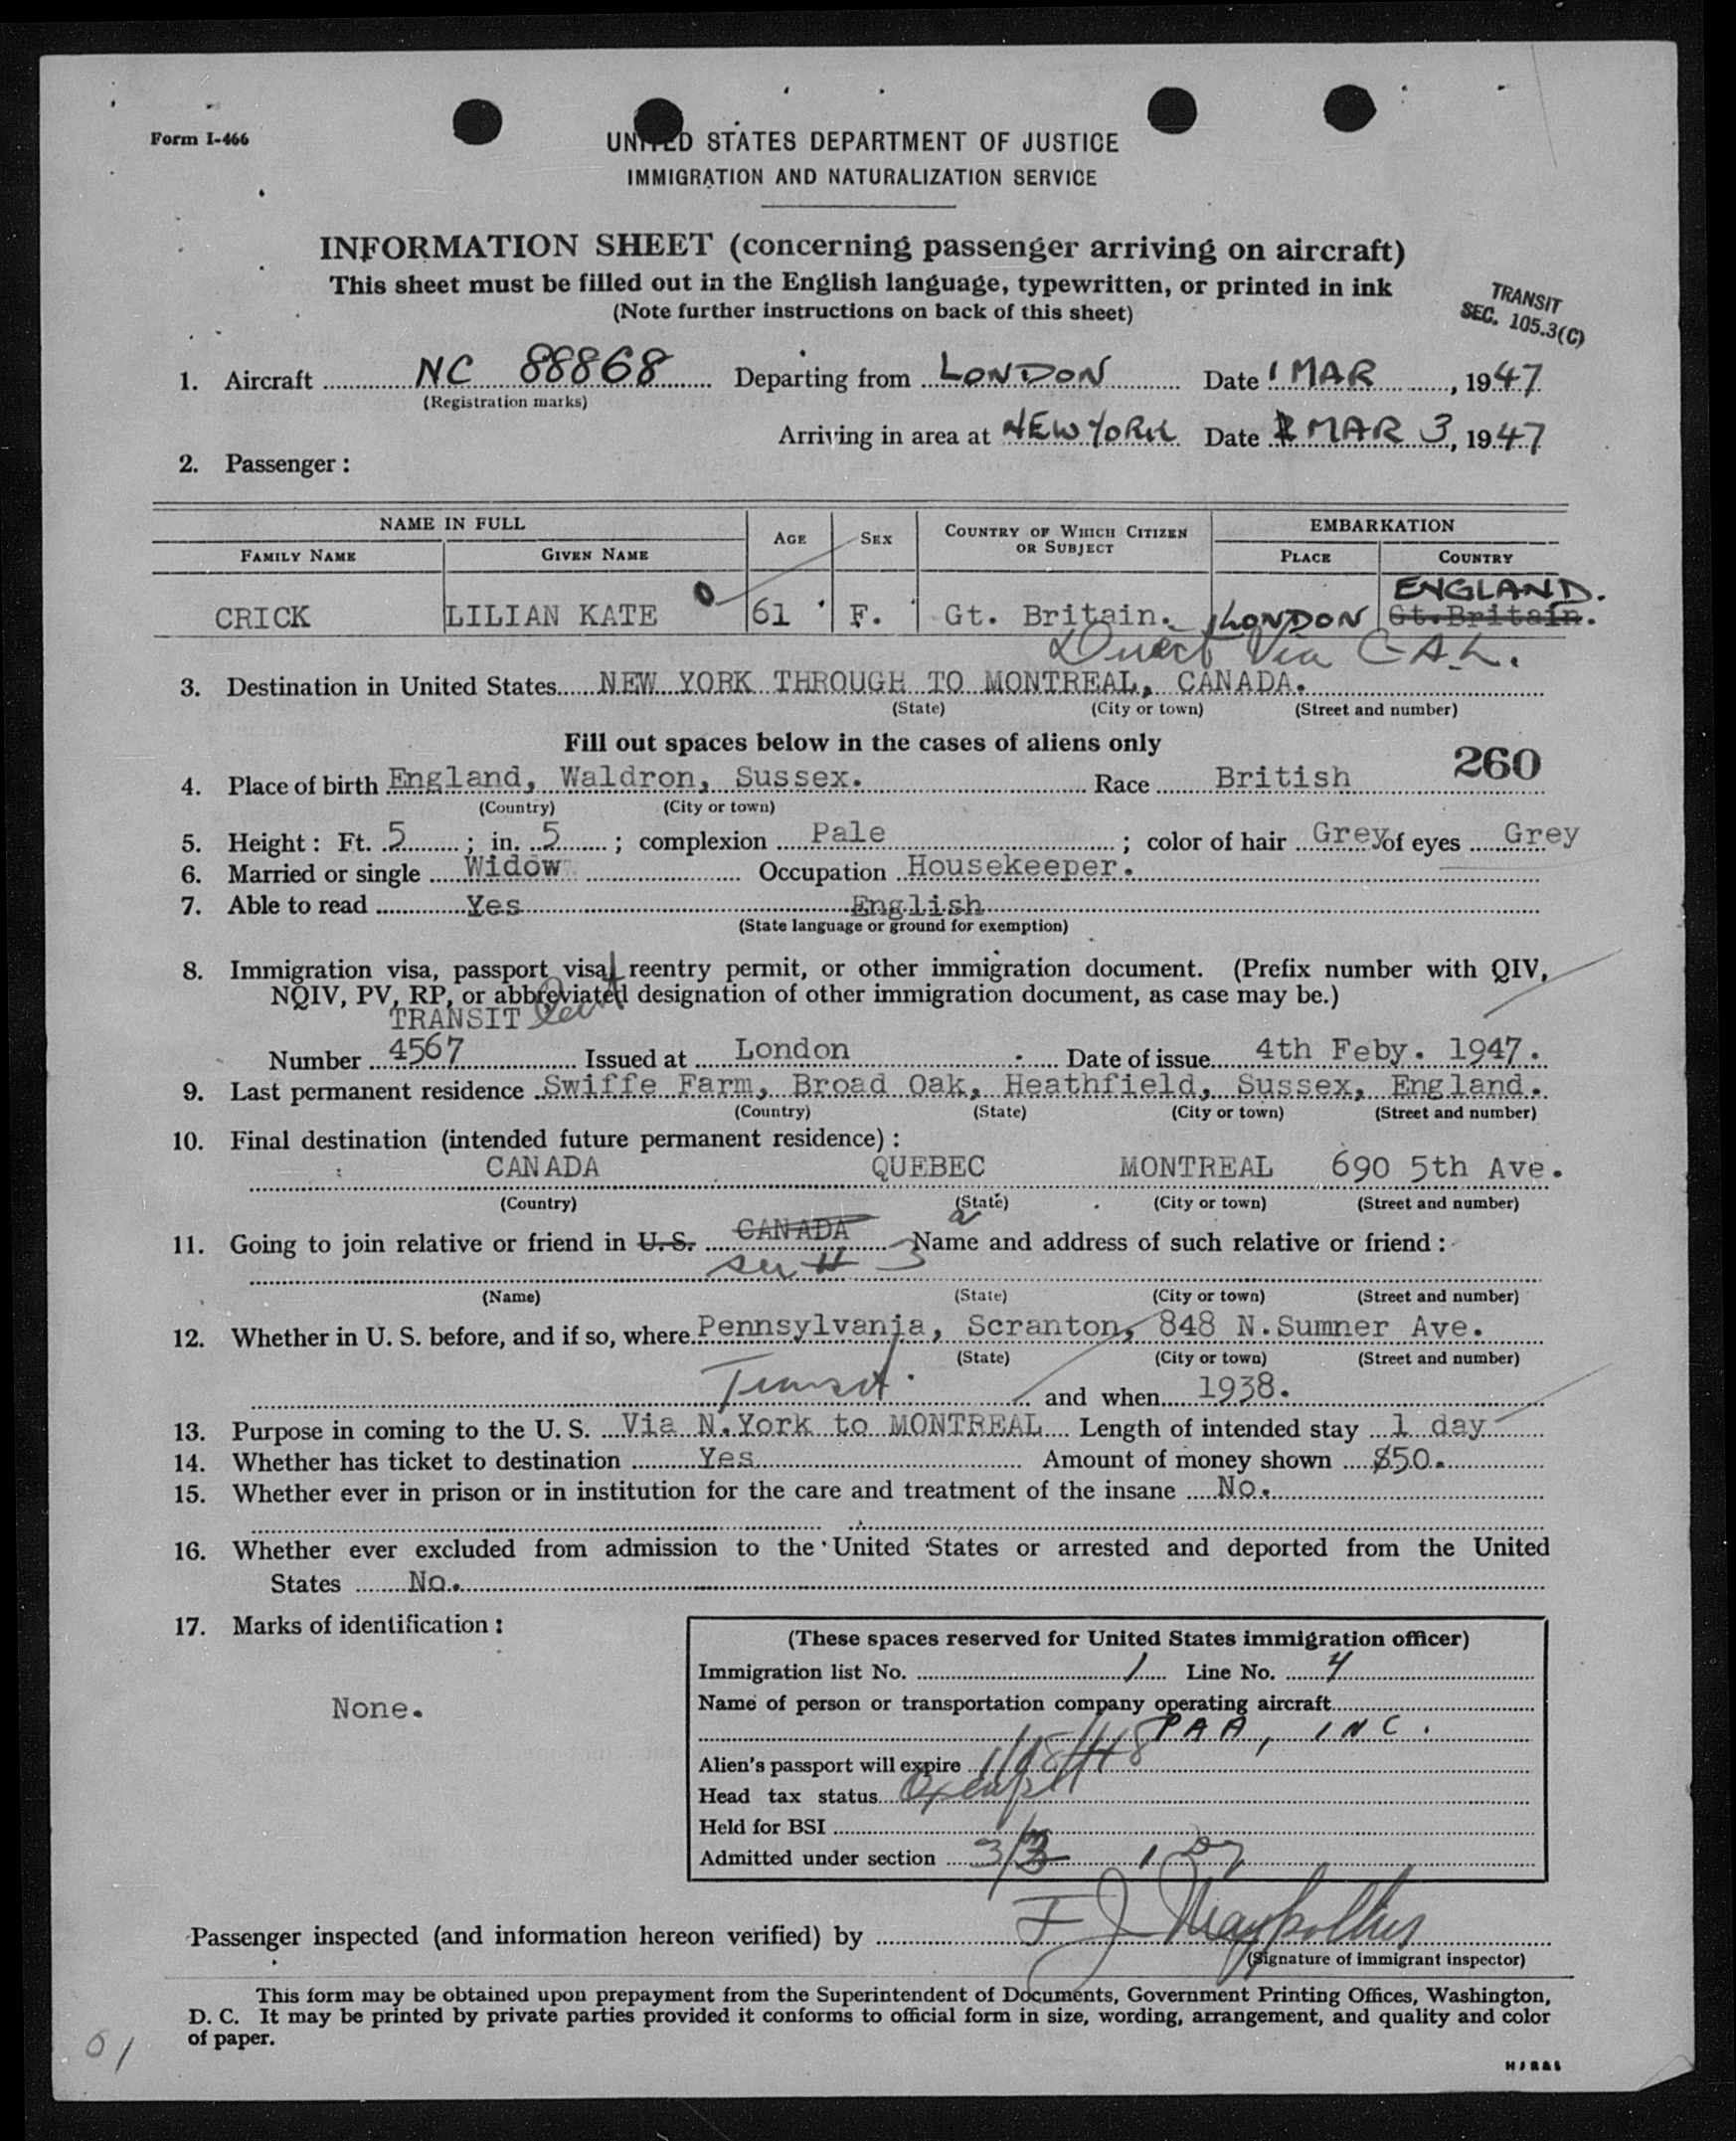 Form I-466
UNITED STATES DEPARTMENT OF JUSTICE
IMMIGRATION AND NATURALIZATION SERVICE
INFORMATION SHEET (concerning passenger arriving on aircraft)
This sheet must be filled out in the English language, typewritten, or printed in ink
(Note further instructions on back of this sheet)
TRANSIT
SEC. 105.3(C)
1. Aircraft NC 88868 Departing from LONDON Date 1 MAR, 1947
(Registration marks)
Arriving in area at NEW YORK Date MAR 3, 1947
2. Passenger:
NAME IN FULL AGE SEX COUNTRY OF WHICH CITIZEN OR SUBJECT EMBARKATION
FAMILY NAME GIVEN NAME PLACE COUNTRY
ENGLAND.
CRICK LILIAN KATE 61 F. Gt. Britain. LONDON Gt.Britain.
Direct Via C.A.L.
3. Destination in United States NEW YORK THROUGH TO MONTREAL, CANADA.
(State) (City or town) (Street and number)
Fill out spaces below in the cases of aliens only
260
4. Place of birth England, Waldron, Sussex. Race British
(Country) (City or town)
5. Height: Ft. 5; in. 5; complexion Pale; color of hair Grey of eyes Grey
6. Married or single Widow Occupation Housekeeper.
7. Able to read Yes English
(State language or ground for exemption)
8. Immigration visa, passport visa, reentry permit, or other immigration document. (Prefix number with QIV,
NQIV, PV, RP, or abbreviated designation of other immigration document, as case may be.)
TRANSIT Cert
Number 4567 Issued at London Date of issue 4th Feby. 1947.
9. Last permanent residence Swiffe Farm, Broad Oak, Heathfield, Sussex, England.
(Country) (State) (City or town) (Street and number)
10. Final destination (intended future permanent residence):
CANADA QUEBEC MONTREAL 690 5th Ave.
(Country) (State) (City or town) (Street and number)
11. Going to join relative or friend in U.S. CANADA Name and address of such relative or friend:
(Name) (State) (City or town) (Street and number)
12. Whether in U. S. before, and if so, where Pennsylvania, Scranton, 848 N.Sumner Ave.
(State) (City or town) (Street and number)
Transit and when 1938.
13. Purpose in coming to the U. S. Via N.York to MONTREAL Length of intended stay 1 day
14. Whether has ticket to destination Yes Amount of money shown $50.
15. Whether ever in prison or in institution for the care and treatment of the insane No.
16. Whether ever excluded from admission to the United States or arrested and deported from the United
States No.
17. Marks of identification:
None.
(These spaces reserved for United States immigration officer)
Immigration list No. 1 Line No. 4
Name of person or transportation company operating aircraft
PAA, INC.
Alien's passport will expire
Head tax status Exempt
Held for BSI
Admitted under section
Passenger inspected (and information hereon verified) by F J
(Signature of immigrant inspector)
This form may be obtained upon prepayment from the Superintendent of Documents, Government Printing Offices, Washington,
D. C. It may be printed by private parties provided it conforms to official form in size, wording, arrangement, and quality and color
of paper.